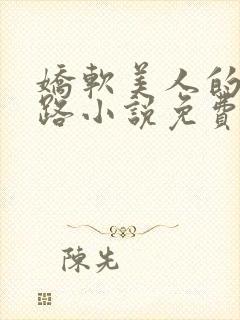 嬌軟美人的
路小說免費
陳先